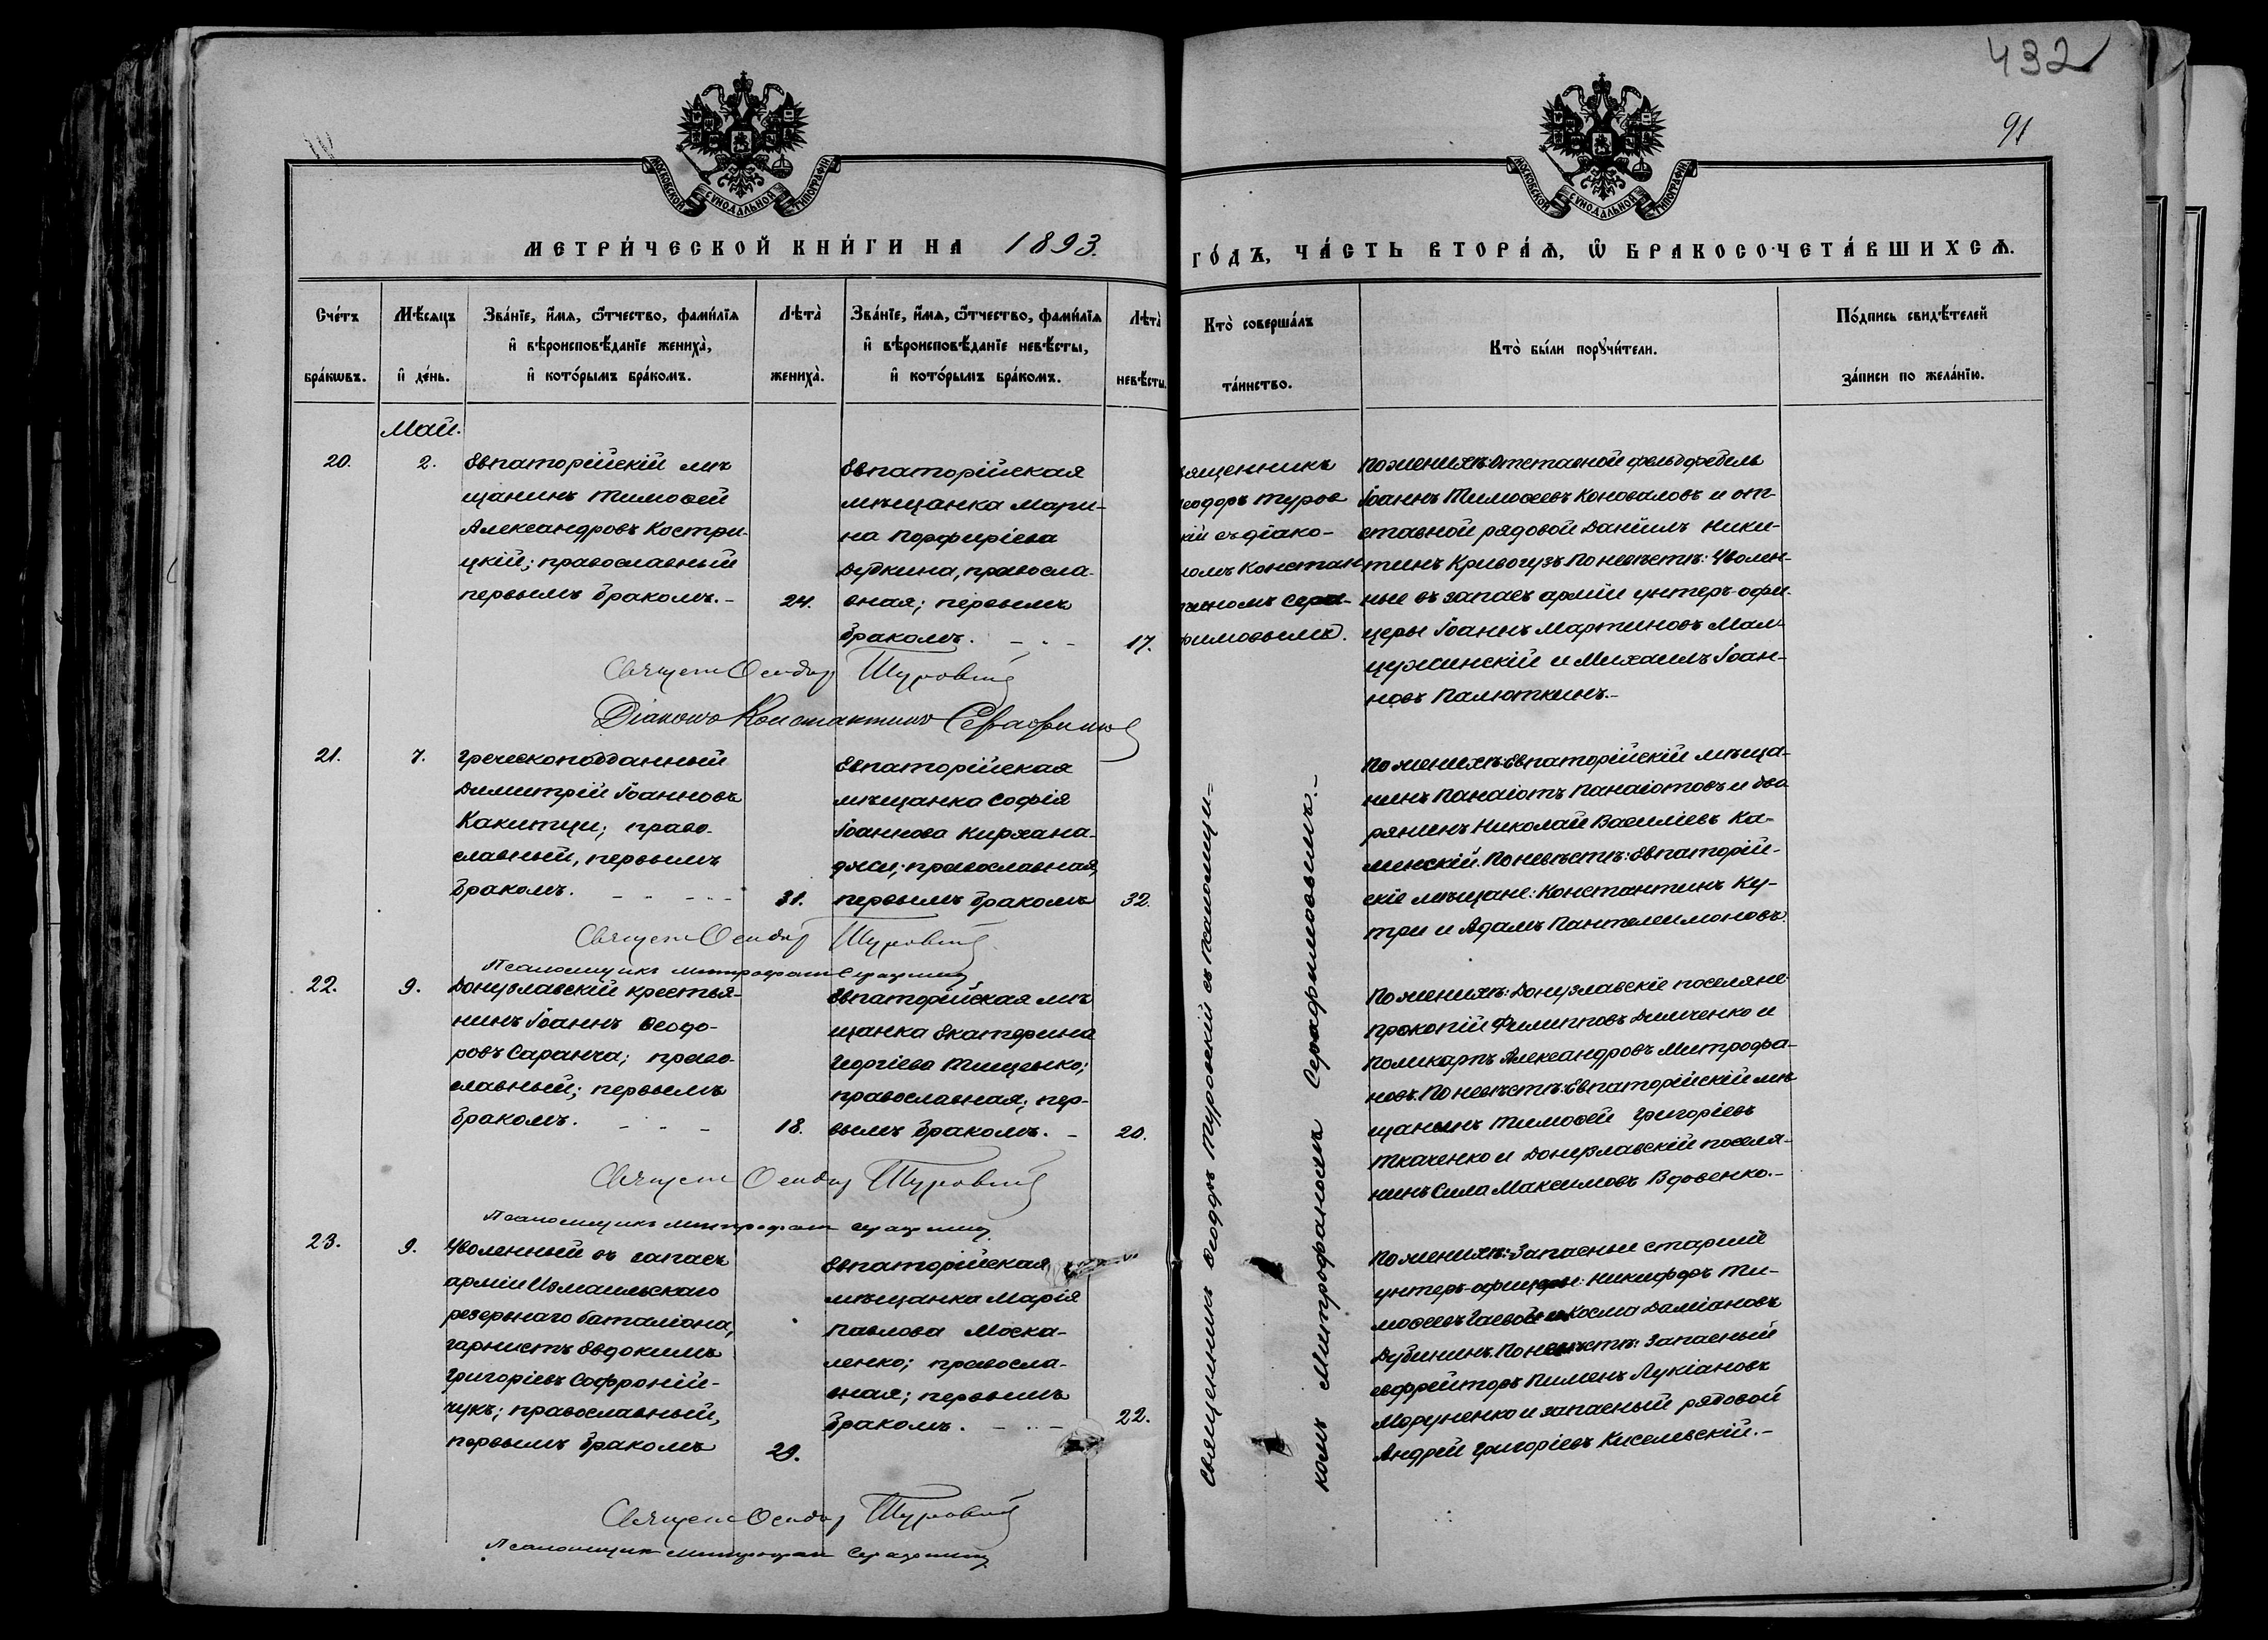 432
91
МОСКОВСКОЙ СѴНОДАЛЬНОЙ ТИПОГРАФІИ
МОСКОВСКОЙ СѴНОДАЛЬНОЙ ТИПОГРАФІИ
МЕТРИ́ЧЕСКОЙ КНИ́ГИ НА 1893.
ГО́ДЪ, ЧА́СТЬ ВТОРА́Ѧ, Ѽ БРАКОСОЧЕТА́ВШИХСѦ.
Сче́тъ
бра́кωвъ.
Мѣ́сяцъ
и҆ де́нь.
Зва́нїе, и҆́мѧ, ѻ҆́тчество, фами́лїѧ
и҆ вѣроисповѣ́данїе жениха̀,
и҆ кото́рымъ бра́комъ.
Лѣта̀
жениха̀.
Зва́нїе, и҆́мѧ, ѻ҆́тчество, фами́лїѧ
и҆ вѣроисповѣ́данїе невѣ́сты,
и҆ кото́рымъ бра́комъ.
Лѣта̀
невѣ́сты.
Кто̀ соверша́лъ
та́инство.
Кто̀ бы́ли порꙋчи́тели.
По́дпись свидѣ́телей
за́писи по жела́нїю.
Май.
20.
2.
Евпаторійскій мѣ
щанинъ Тимоѳей
Александровъ Костри-
цкій; православный
первымъ бракомъ.-
24.
Евпаторійская
мѣщанка Мари-
на Порфиріева
Дудкина, правосла-
вная; первымъ
бракомъ.
17.
вященникъ
еодоръ Туров
кій съ діако-
номъ Констан
тиномъ Сера-
фимовымъ.
По женихѣ: Отставной фельдфебель
Іоаннъ Тимоѳеевъ Коноваловъ и от-
ставной рядовой Даніилъ Ники-
тинъ Кривогузъ По невѣстѣ: Уволен-
ные въ запасъ арміи унтеръ-офи-
церы Іоаннъ Мартиновъ Мал-
цужинскій и Михаилъ Іоан-
новъ Палюткинъ.-
Священ Ѳеодор Туровскій
Діаконъ Константинъ Серафимов
21.
7.
Греческоподданный
Димитрій Іоанновъ
Какитци; право-
славный, первымъ
бракомъ.
31.
Евпаторійская
мѣщанка Софія
Іоаннова Кирхана-
джи; православная,
первымъ бракомъ
32.
По женихѣ: Евпаторійскій мѣща-
нинъ Панаіотъ Панаіотовъ и дво
рянинъ Николай Василіевъ Ка-
минскій. По невѣстѣ: Евпаторій-
скіе мѣщане: Константинъ Ку-
три и Адамъ Пантелеимоновъ.
Священ Ѳеодор Туровскій
Псаломщикъ Митрофанъ Серафимов
22.
9.
Донузлавскій крестья-
нинъ Іоаннъ Ѳеодо-
ровъ Саранча; право-
славный; первымъ
бракомъ.
18.
Евпаторійская мѣ
щанка Екатерина
Георгіева Тищенко;
православная; пер-
вымъ бракомъ.
20.
По женихѣ: Донузлавскіе поселяне
Прокопій Филипповъ Димченко и
Поликарпъ Александровъ Митрофа-
новъ. По невѣстѣ: Евпаторійскій мѣ
щанинъ Тимоѳей Григоріевъ
Ткаченко и Донузлавскій поселя-
нинъ Сила Максимовъ Вдовенко.-
Священ Ѳеодор Туровскій
Псаломщикъ Митрофанъ Серафимов
23.
9.
Уволенный въ запасъ
арміи Измаильскаго
резервнаго баталіона,
гарнистъ Евдокимъ
Григоріевъ Софроній-
чукъ; православный,
первымъ бракомъ
29.
Евпаторійская
мѣщанка Марія
Павлова Моска-
ленко; правосла-
вная; первымъ
бракомъ.
22.
По женихѣ: Запасные старшіе
унтеръ-офицеры: Никифоръ Ти-
моѳеевъ Гаевой и Косма Даміановъ
Дубининъ. По невѣстѣ: Запасный
ефрейторъ Пименъ Лукіановъ
Моруненко и запасный рядовой
Андрей Григоріевъ Киселевскій.-
Священ Ѳеодор Туровскій
Псаломщикъ Митрофанъ Серафимов
Священникъ Ѳеодоръ Туровскій съ псаломщи-
комъ Митрофаномъ Серафимовымъ.-